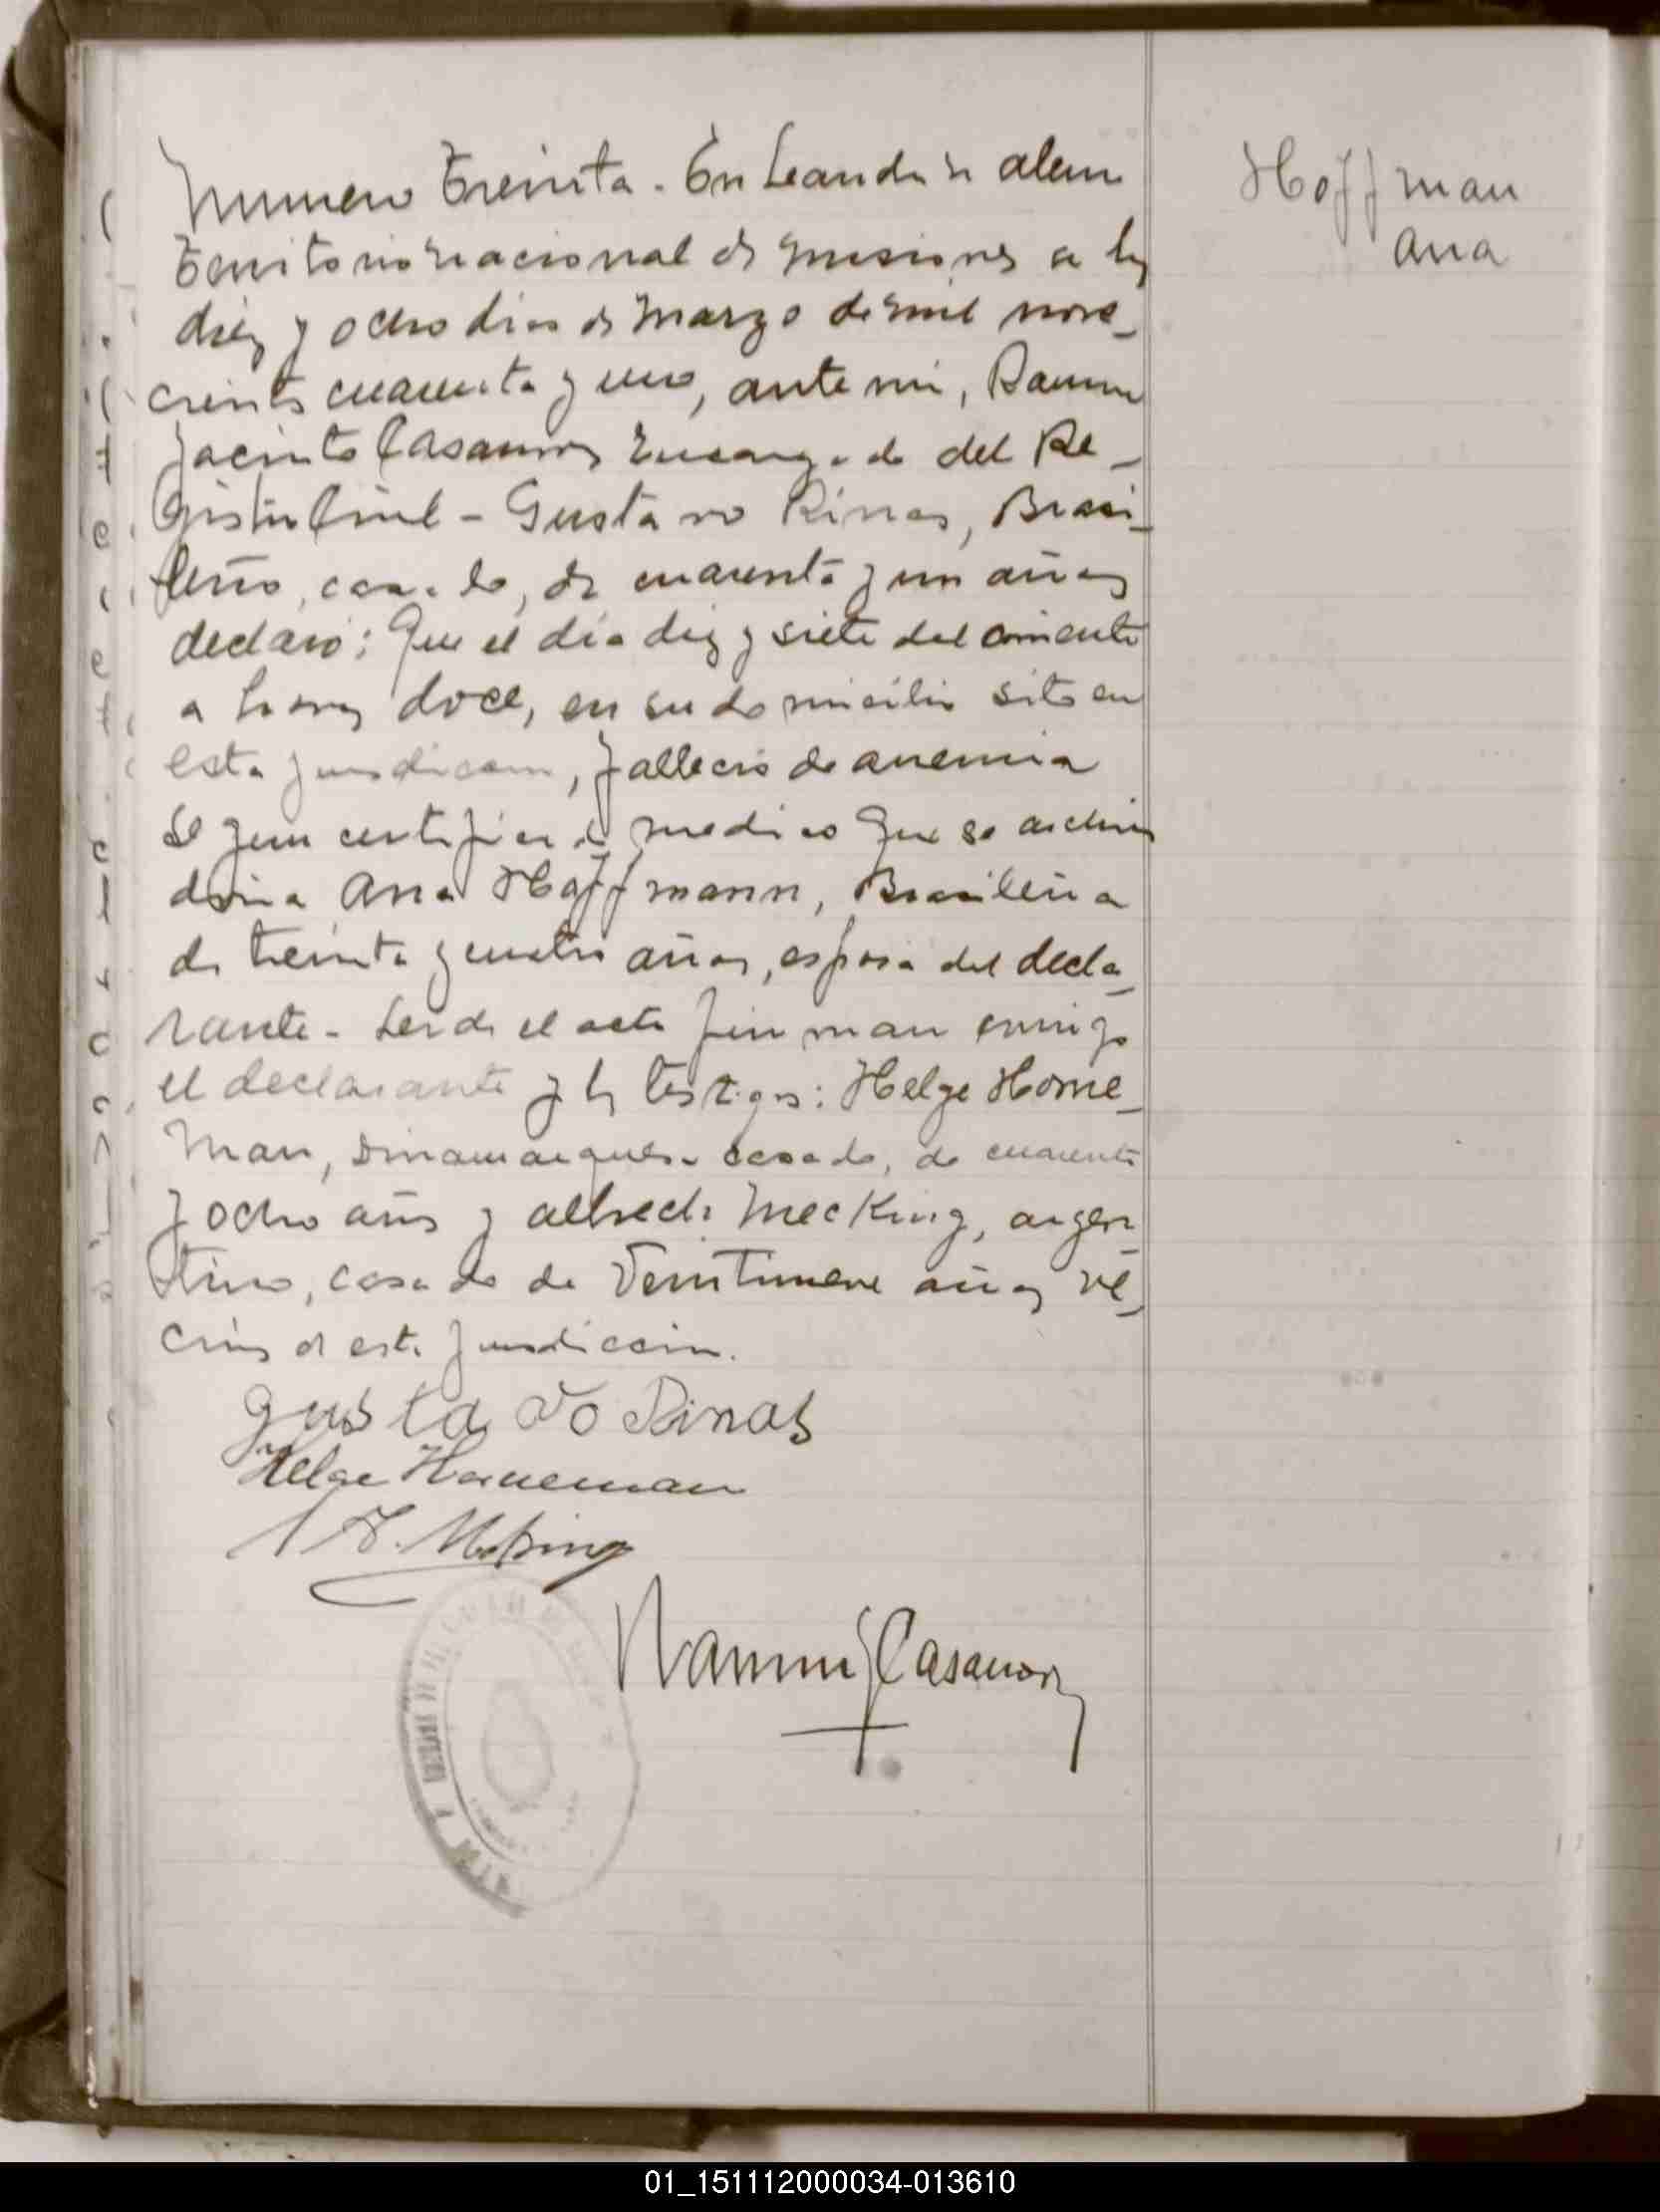 Numero Treinta. En Leandro N alem
Territorio nacional de Misiones a los
diez y ocho dias de Marzo de mil nove_
cientos cuarenta y uno, ante mi, Ramon
Jacinto Casanova Encargado del Re_
gistro Civil - Gustavo Rinas, Brasi_
leño, casado, de cuarenta y un años
declaró: Que el día diez y siete del corriente
a horas doce, en su domicilio sito en
esta jurisdiccion, fallecio de anemia
segun certificado medico que se archiva
doña Ana Hoffmann, Brasileña
de treinta y cuatro años, esposa del decla_
rante - Leida el acta firman conmigo
el declarante y los testigos: Helge Horne_
man, Dinamarques casado, de cuarenta
y ocho años y alfredo Mecking, argen_
tino, casado de Veintinueve años ve_
cinos de esta jurisdiccion.
Gustavo Rinas
Helge Horneman
Ramon J Casanova
Hoffman
Ana
01_151112000034-013610